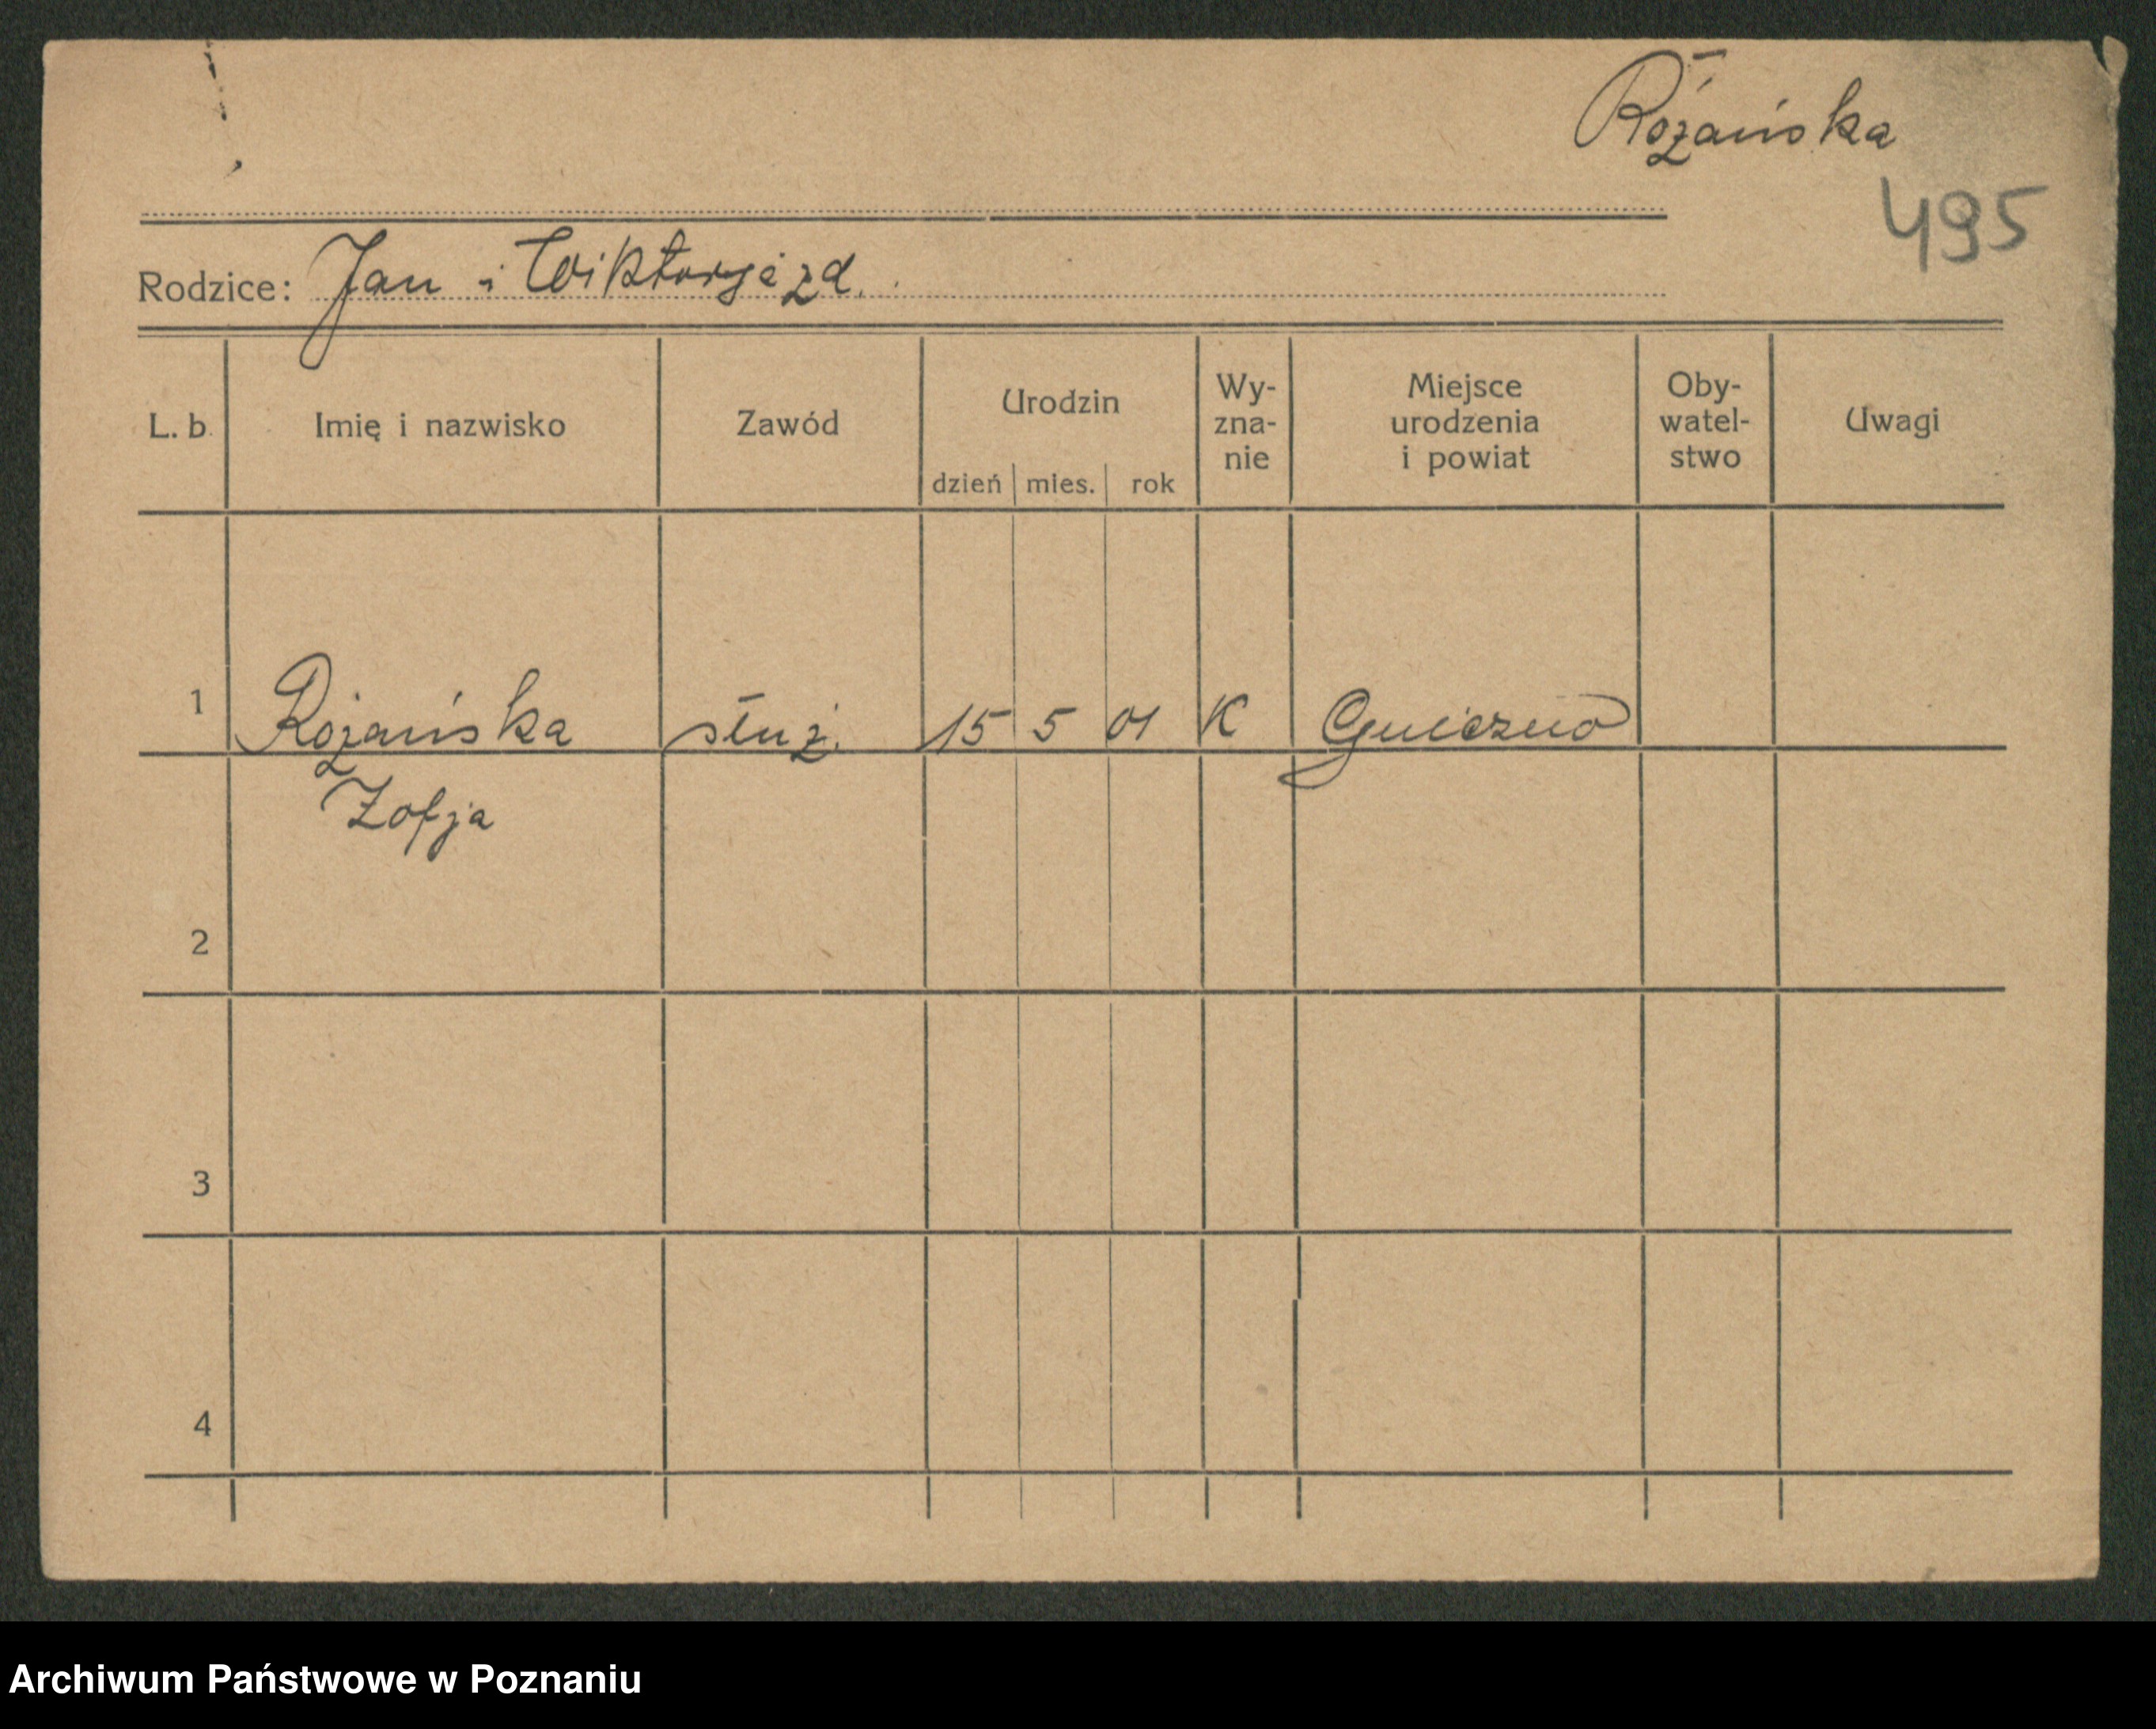 Różańska
495
Rodzice: Jan i Wiktorja zd.
L. b. Imię i nazwisko Zawód Urodzin dzień mies. rok Wy-zna-nie Miejsce urodzenia i powiat Oby-watel-stwo Uwagi
1 Rożańska służ. 15 5 01 K Gniezno
Zofja
2
3
4
Archiwum Państwowe w Poznaniu